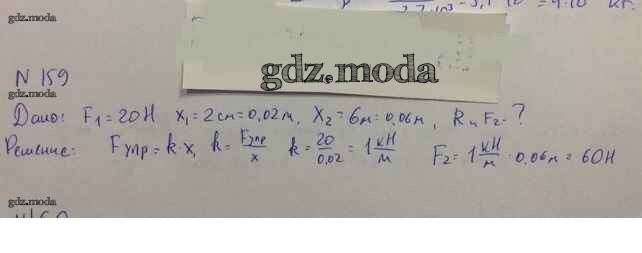 gdz.moda
gdz.moda
N 159
Дано: F₁=20Н x₁=2см=0,02м, X₂=6м=0,06м, R и F₂-?
Решение: Fупр=k·x, k=Fупр/x k=20/0,02=1кН/м F₂=1кН/м·0,06м=60Н
gdz.moda